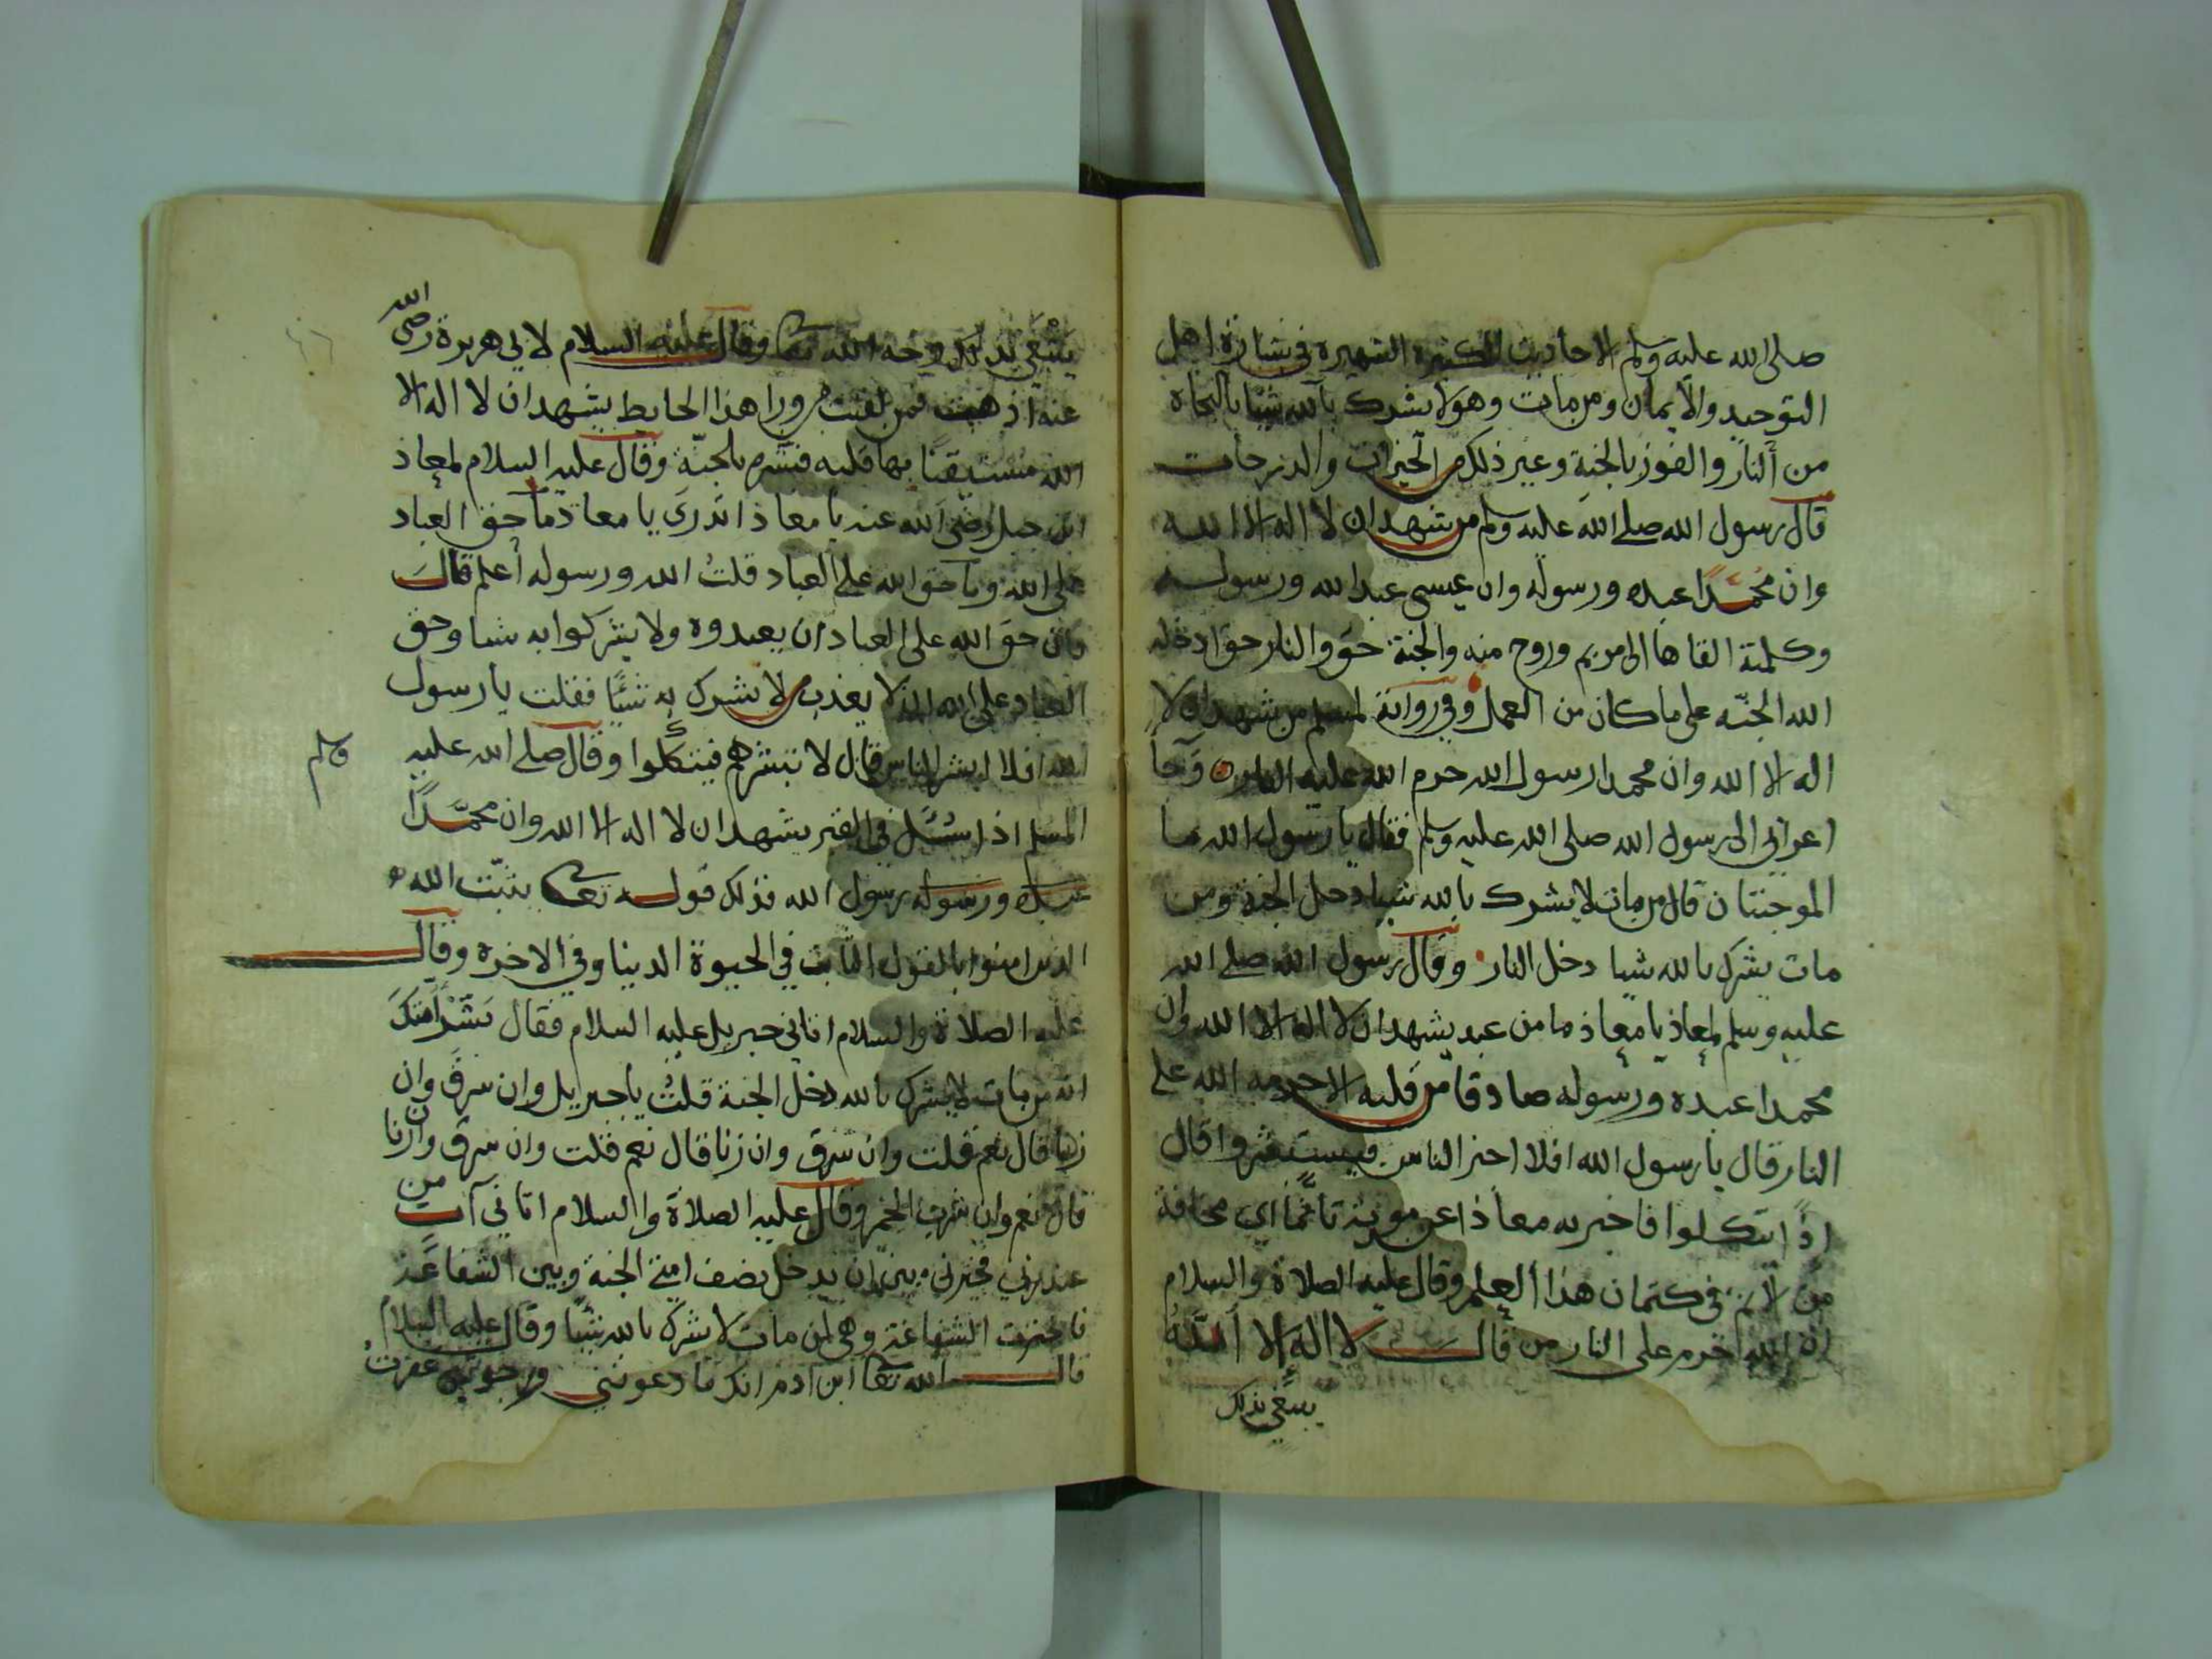 صلى الله عليه وسلم الاحاديث الكثيره الشهيره في بشارة اهل
التوحيد والايمان ومن مات وهو لا يشرك بالله شيئا بالنجاه
من النار والفوز بالجنة وغير ذلك من الخيرات والدرجات
قال رسول الله صلى الله عليه وسلم من شهد ان لا اله الا الله
وان محمدا عبده ورسوله وان عيسى عبد الله ورسوله
وكلمته القاها الى مريم وروح منه والجنة حق والنار حق ادخله
الله الجنّه على ما كان من العمل وفي رواية لمسلم من شهد ان لا
اله الا الله وان محمدا رسول الله حرم الله عليه النار وجآ
اعرابي الى رسول الله صلى الله عليه وسلم فقال يا رسول الله ما
الموجبتان قال من مات لا يشرك بالله شيا دخل الجنة ومن
مات يشرك بالله شيا دخل النار وقال رسول الله صلى الله
عليه وسلم لمعاذ يا معاذ ما من عبد يشهد ان لا اله الا الله وان
محمدا عبده ورسوله صادقا من قلبه الا حرمه الله على
النار قال يا رسول الله افلا اخبر الناس فيستبشروا قال
اذًا يتكلوا فاخبر به معاذ عن موته تأثّمًا اي مخافة
من الاثم في كتمان هذا العلم وقال عليه الصلاة والسلام
ان الله حرم على النار من قال لا اله الا اللهُ
يبتغي بذلك
يبتغي بذلك وجه الله تعالى وقال عليه السلام لابي هريرة رضي الله
عنه اذهب فمن لقيت من ورا هذا الحايط يشهد ان لا اله الا
الله مستيقنًا بها قلبه فبشره بالجنّة وقال عليه السلام لمعاذ
ابن جبل رضي الله عنه يا معاذ اتدري يا معاذ ما حق العباد
على الله وما حق الله على العباد قلتُ الله ورسوله أعلم قال
فان حق الله على العباد ان يعبدوه ولا يشركوا به شيا وحق
العباد على الله ان لا يعذب من لا يشرك به شيئًا فقلت يا رسول
الله افلا ابشر الناس قال لا تبشرهم فيتكلوا وقال صلى الله عليه
وسلم
المسلم اذا سئل في القبر يشهد ان لا اله الا الله وان محمّدًا
عبده ورسوله رسول الله فذلك قوله تعالى يثبّت الله
الذين امنوا بالقول الثابت في الحيوة الدينا وفي الاخره وقال
عليه الصلاة والسلام اتاني جبريل عليه السلام فقال بشّر أمتك
انه من مات لا يشرك بالله دخل الجنة قلتُ يا جبريل وان سرق وان
زنا قال نعم قلت وان سرق وان زنا قال نعم قلت وان سرق وان زنا
قال نعم وان شرب الخمر وقال عليه الصلاة والسلام اتاني آت من
عند ربي فخيرني بين ان يدخل نصف امتي الجنة وبين الشفاعة
فاخترت الشفاعة وهي لمن مات لا يشرك بالله شيئًا وقال عليه السلام
قال الله تعالى ابن ادم انك ما دعوتني ورجوتني غفرت